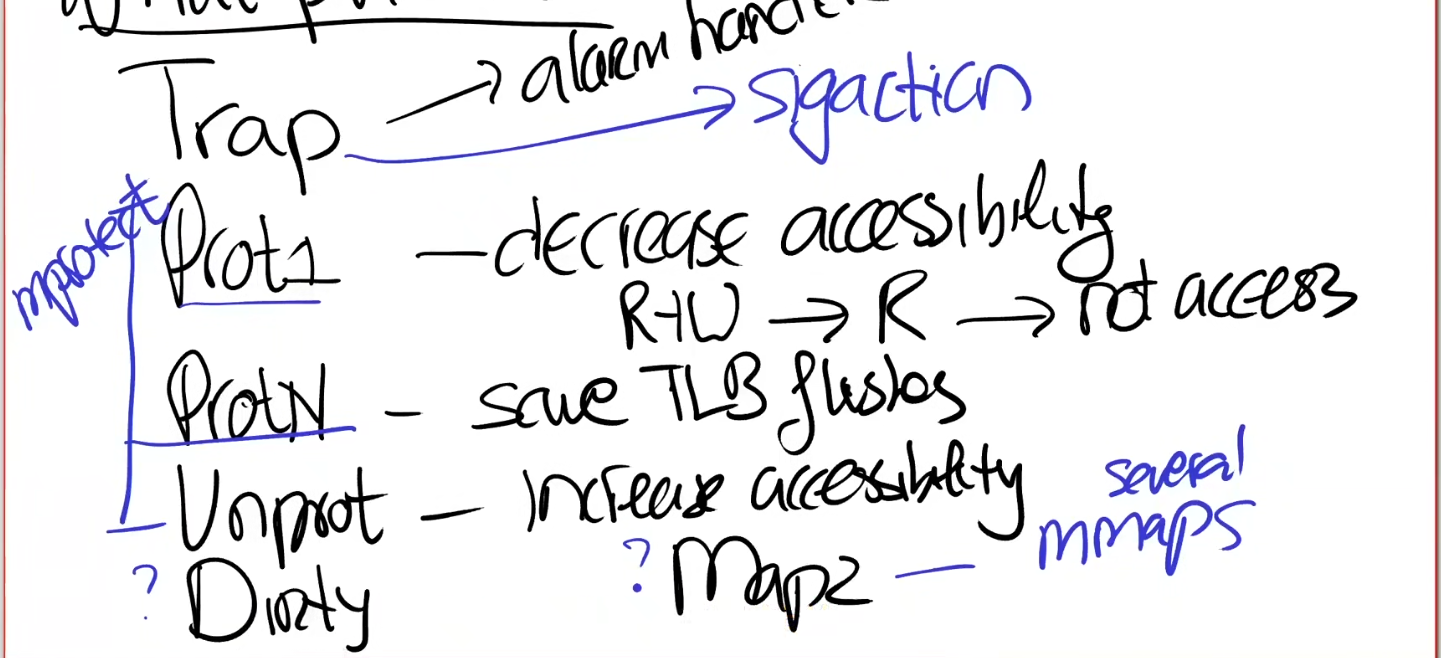 Trap → alarm
→ sigaction
mprotect
Prot1 — decrease accessibility
R+W → R → not access
ProtN – save TLB flushes
Unprot — increase accessibility
several
mmaps
? Dirty ? Map2 —